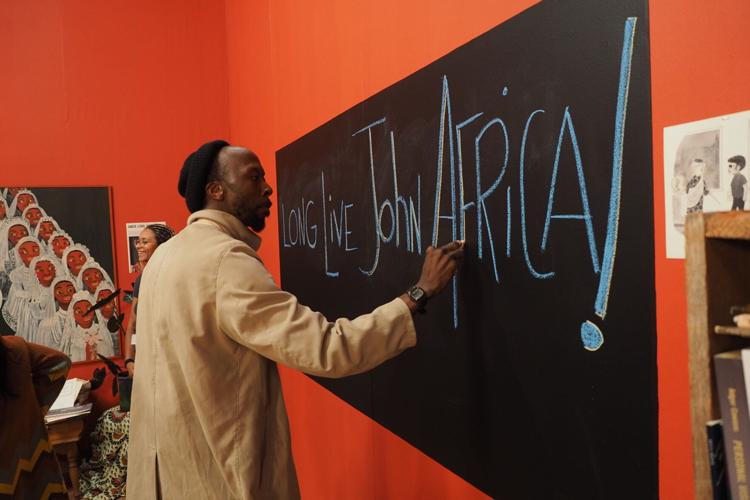 LONG LIVE JOhN AFRICA!